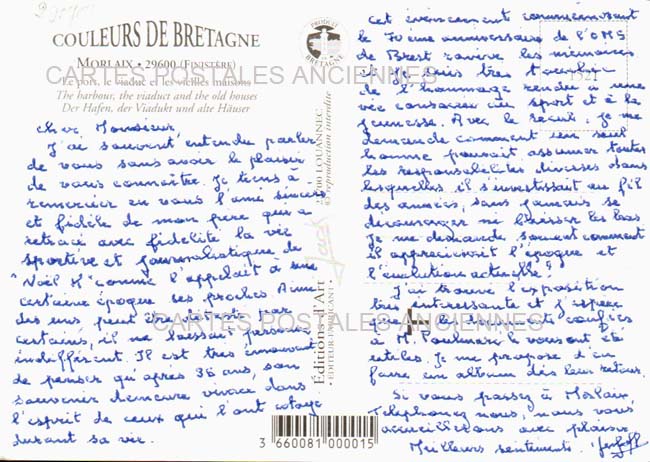 COULEURS DE BRETAGNE
MORLAIX • 29600 (FINISTÈRE)
Le port, le viaduc et les vieilles maisons
The harbour, the viaduct and the old houses
Der Hafen, der Viadukt und alte Häuser
PRODUIT EN BRETAGNE
CARTES POSTALES ANCIENNES
Cher Monsieur,
J'ai souvent entendu parler
de vous sans avoir le plaisir
de vous connaître. Je tiens à
remercier en vous l'ami sincère
et fidèle de mon père qui a
retracé avec fidélité la vie
sportive et journalistique de
"Noël K" comme l'appelait à une
certaine époque ses proches. Aimé
des uns peut être détesté par
certains, il ne laissait personne
indifférent. Il est très émouvant
de penser qu'après 36 ans, son
souvenir demeure vivace dans
l'esprit de ceux qui l'ont cotoyé
durant sa vie.
Editions d'Art Jack
• EDITEUR-FABRICANT •
LOUANNEC
© reproduction interdite
3 660081 000015
Cet évènement commémorant
le 70ème anniversaire de l'OMS
de Brest ravive les mémoires
très
de l'hommage rendu à une
vie consacrée au sport et à la
jeunesse. Avec le recul, je me
demande comment un seul
homme pouvait assumer toutes
les responsabilités diverses dans
lesquelles il s'investissait au fil
des années, sans jamais se
décourager ni baisser les bras
Je me demande souvent comment
il apprécierait l'époque et
l'évolution actuelle?
J'ai trouvé l'exposition
très intéressante et j'espère
que les documents confiés
à M. vous ont été
utiles. Je me propose d'en
faire un album dès leur retour.
Si vous passez à Morlaix,
Telephonez nous, nous vous
accueillerons avec plaisir
Meilleurs sentiments.
CARTES POSTALES ANCIENNES